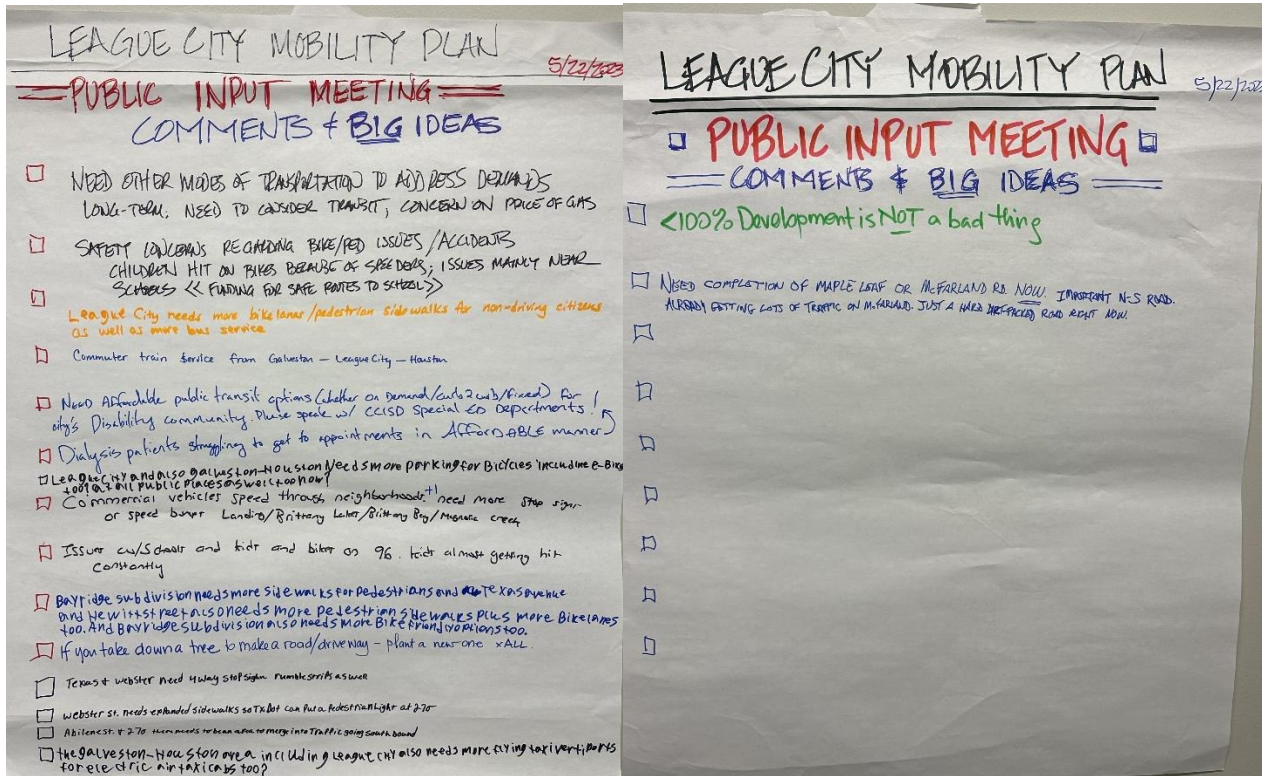 LEAGUE CITY MOBILITY PLAN
5/22/2023
PUBLIC INPUT MEETING
COMMENTS & BIG IDEAS
NEED OTHER MODES OF TRANSPORTATION TO ADDRESS DEMANDS
LONG-TERM. NEED TO CONSIDER TRANSIT, CONCERN ON PRICE OF GAS
SAFETY CONCERNS REGARDING BIKE/PED ISSUES/ACCIDENTS
CHILDREN HIT ON BIKES BECAUSE OF SPEEDERS; ISSUES MAINLY NEAR
SCHOOLS << FUNDING FOR SAFE ROUTES TO SCHOOL>>
League City needs more bike lanes/pedestrian sidewalks for non-driving citizens
as well as more bus service
Commuter train service from Galveston - League City - Houston
NEED Affordable public transit options (whether on Demand/curb2curb/fixed) for
city's Disability community. Please speak w/ CCISD Special ED Departments!
Dialysis patients struggling to get to appointments in AFFORDABLE manner
League City and also galveston-Houston Needs more parking for Bicycles include e-Bike
too? at all public places as well too now?
Commercial vehicles speed through neighborhoods +1 need more stop signs
or speed bumps Landing/Brittany Lakes/Brittany Bay/Magnolia creek
Issues w/schools and kids and bikes on 96. kids almost getting hit
constantly
Bayridge subdivision needs more sidewalks for pedestrians and Texas avenue
and Hewitt street also needs more pedestrian sidewalks plus more Bike lanes
too. And Bayridge subdivision also needs more Bike friendly options too.
If you take down a tree to make a road/driveway - plant a new one xALL.
Texas & webster need 4way stop sign rumble strips as well
webster st. needs expanded sidewalks so TxDot can put a Pedestrian Light at 270
Abilene st. & 270 there needs to be an area to merge into Traffic going south bound
the galveston-Houston area including League City also needs more flying taxi vertiports
for electric air taxi cabs too?
LEAGUE CITY MOBILITY PLAN
5/22/202
PUBLIC INPUT MEETING
COMMENTS & BIG IDEAS
<100% Development is NOT a bad thing
NEED COMPLETION OF MAPLE LEAF OR McFARLAND RD. NOW. IMPORTANT N-S ROAD.
ALREADY GETTING LOTS OF TRAFFIC ON McFARLAND. JUST A HARD DIRT-PACKED ROAD RIGHT NOW.